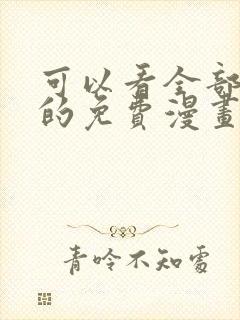 可以看全部
的免費漫畫
青呤不知處